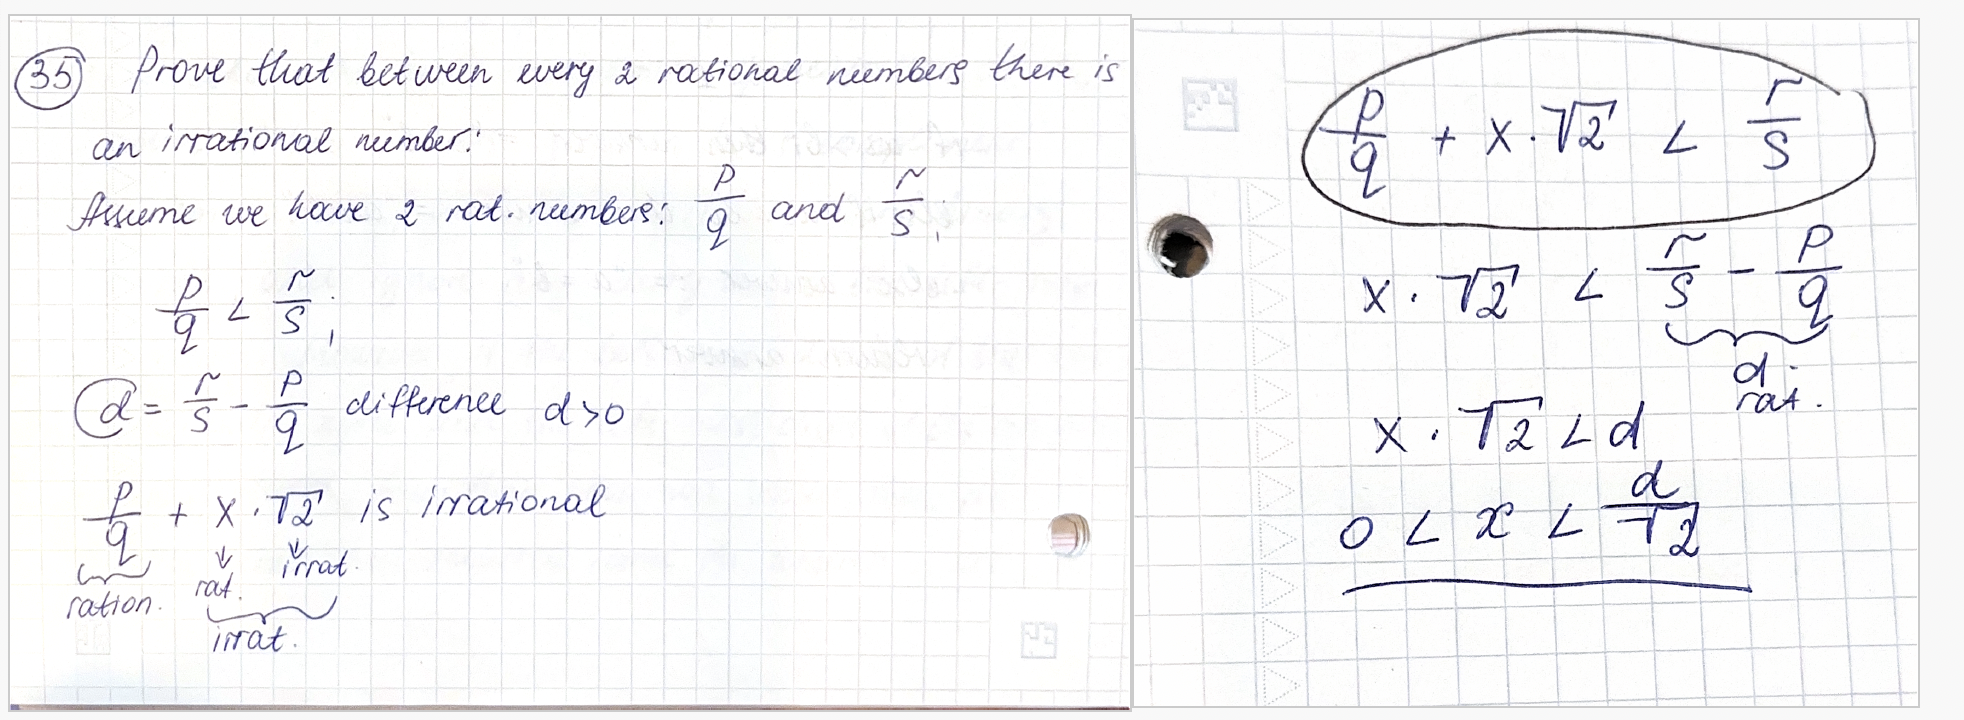 35 Prove that between every 2 rational numbers there is
an irrational number:
Assume we have 2 rat. numbers: p/q and r/s;
p/q < r/s;
d = r/s - p/q difference d>0
p/q + x · √2 is irrational
ration. rat. irrat.
irrat.
p/q + x · √2 < r/s
x · √2 < r/s - p/q
d - rat.
x · √2 < d
0 < x < d/√2